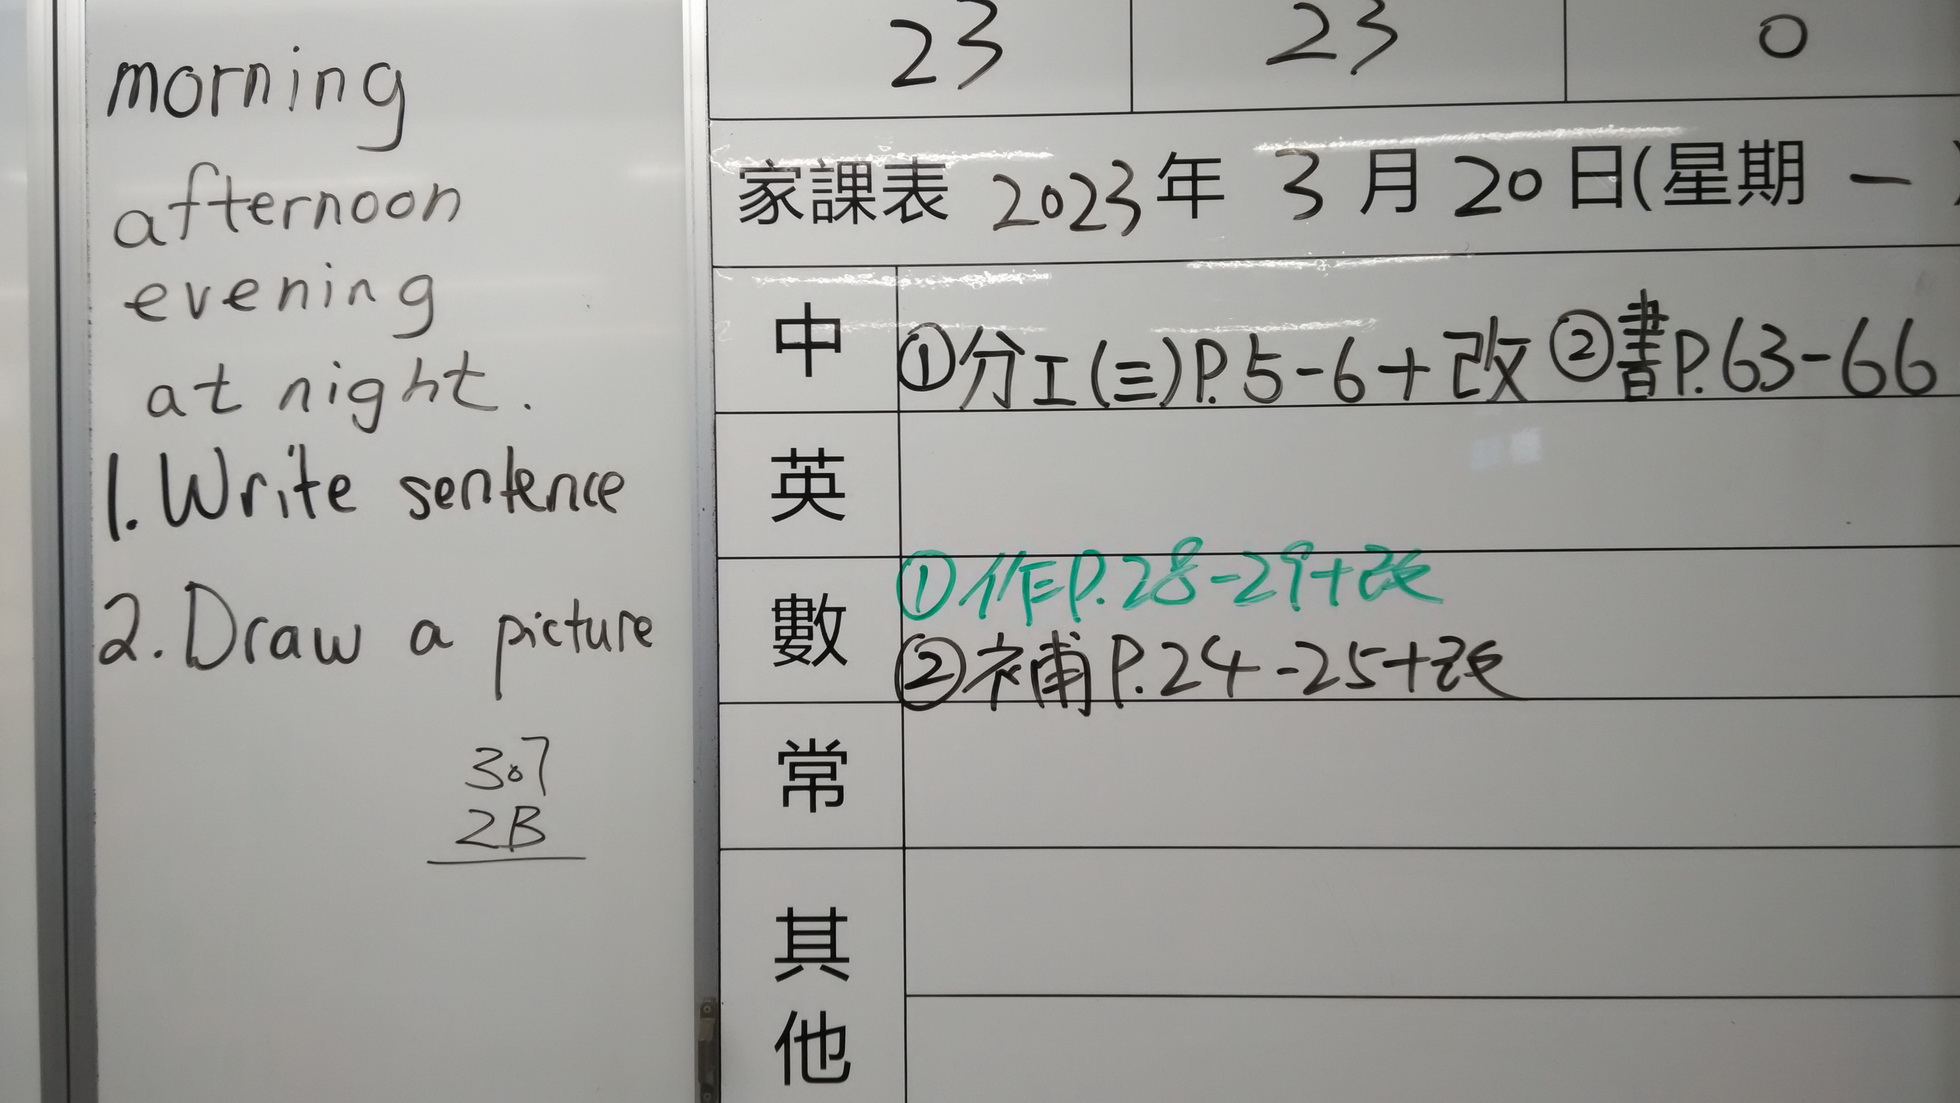 morning
afternoon
evening
at night.
1. Write sentence
2. Draw a picture
307
2B
23 23 0
家課表 2023年 3月20日(星期 一)
中 ①分工(三)P.5-6+改 ②書P.63-66
英
數 ①作P.28-29+改
②補P.24-25+改
常
其他